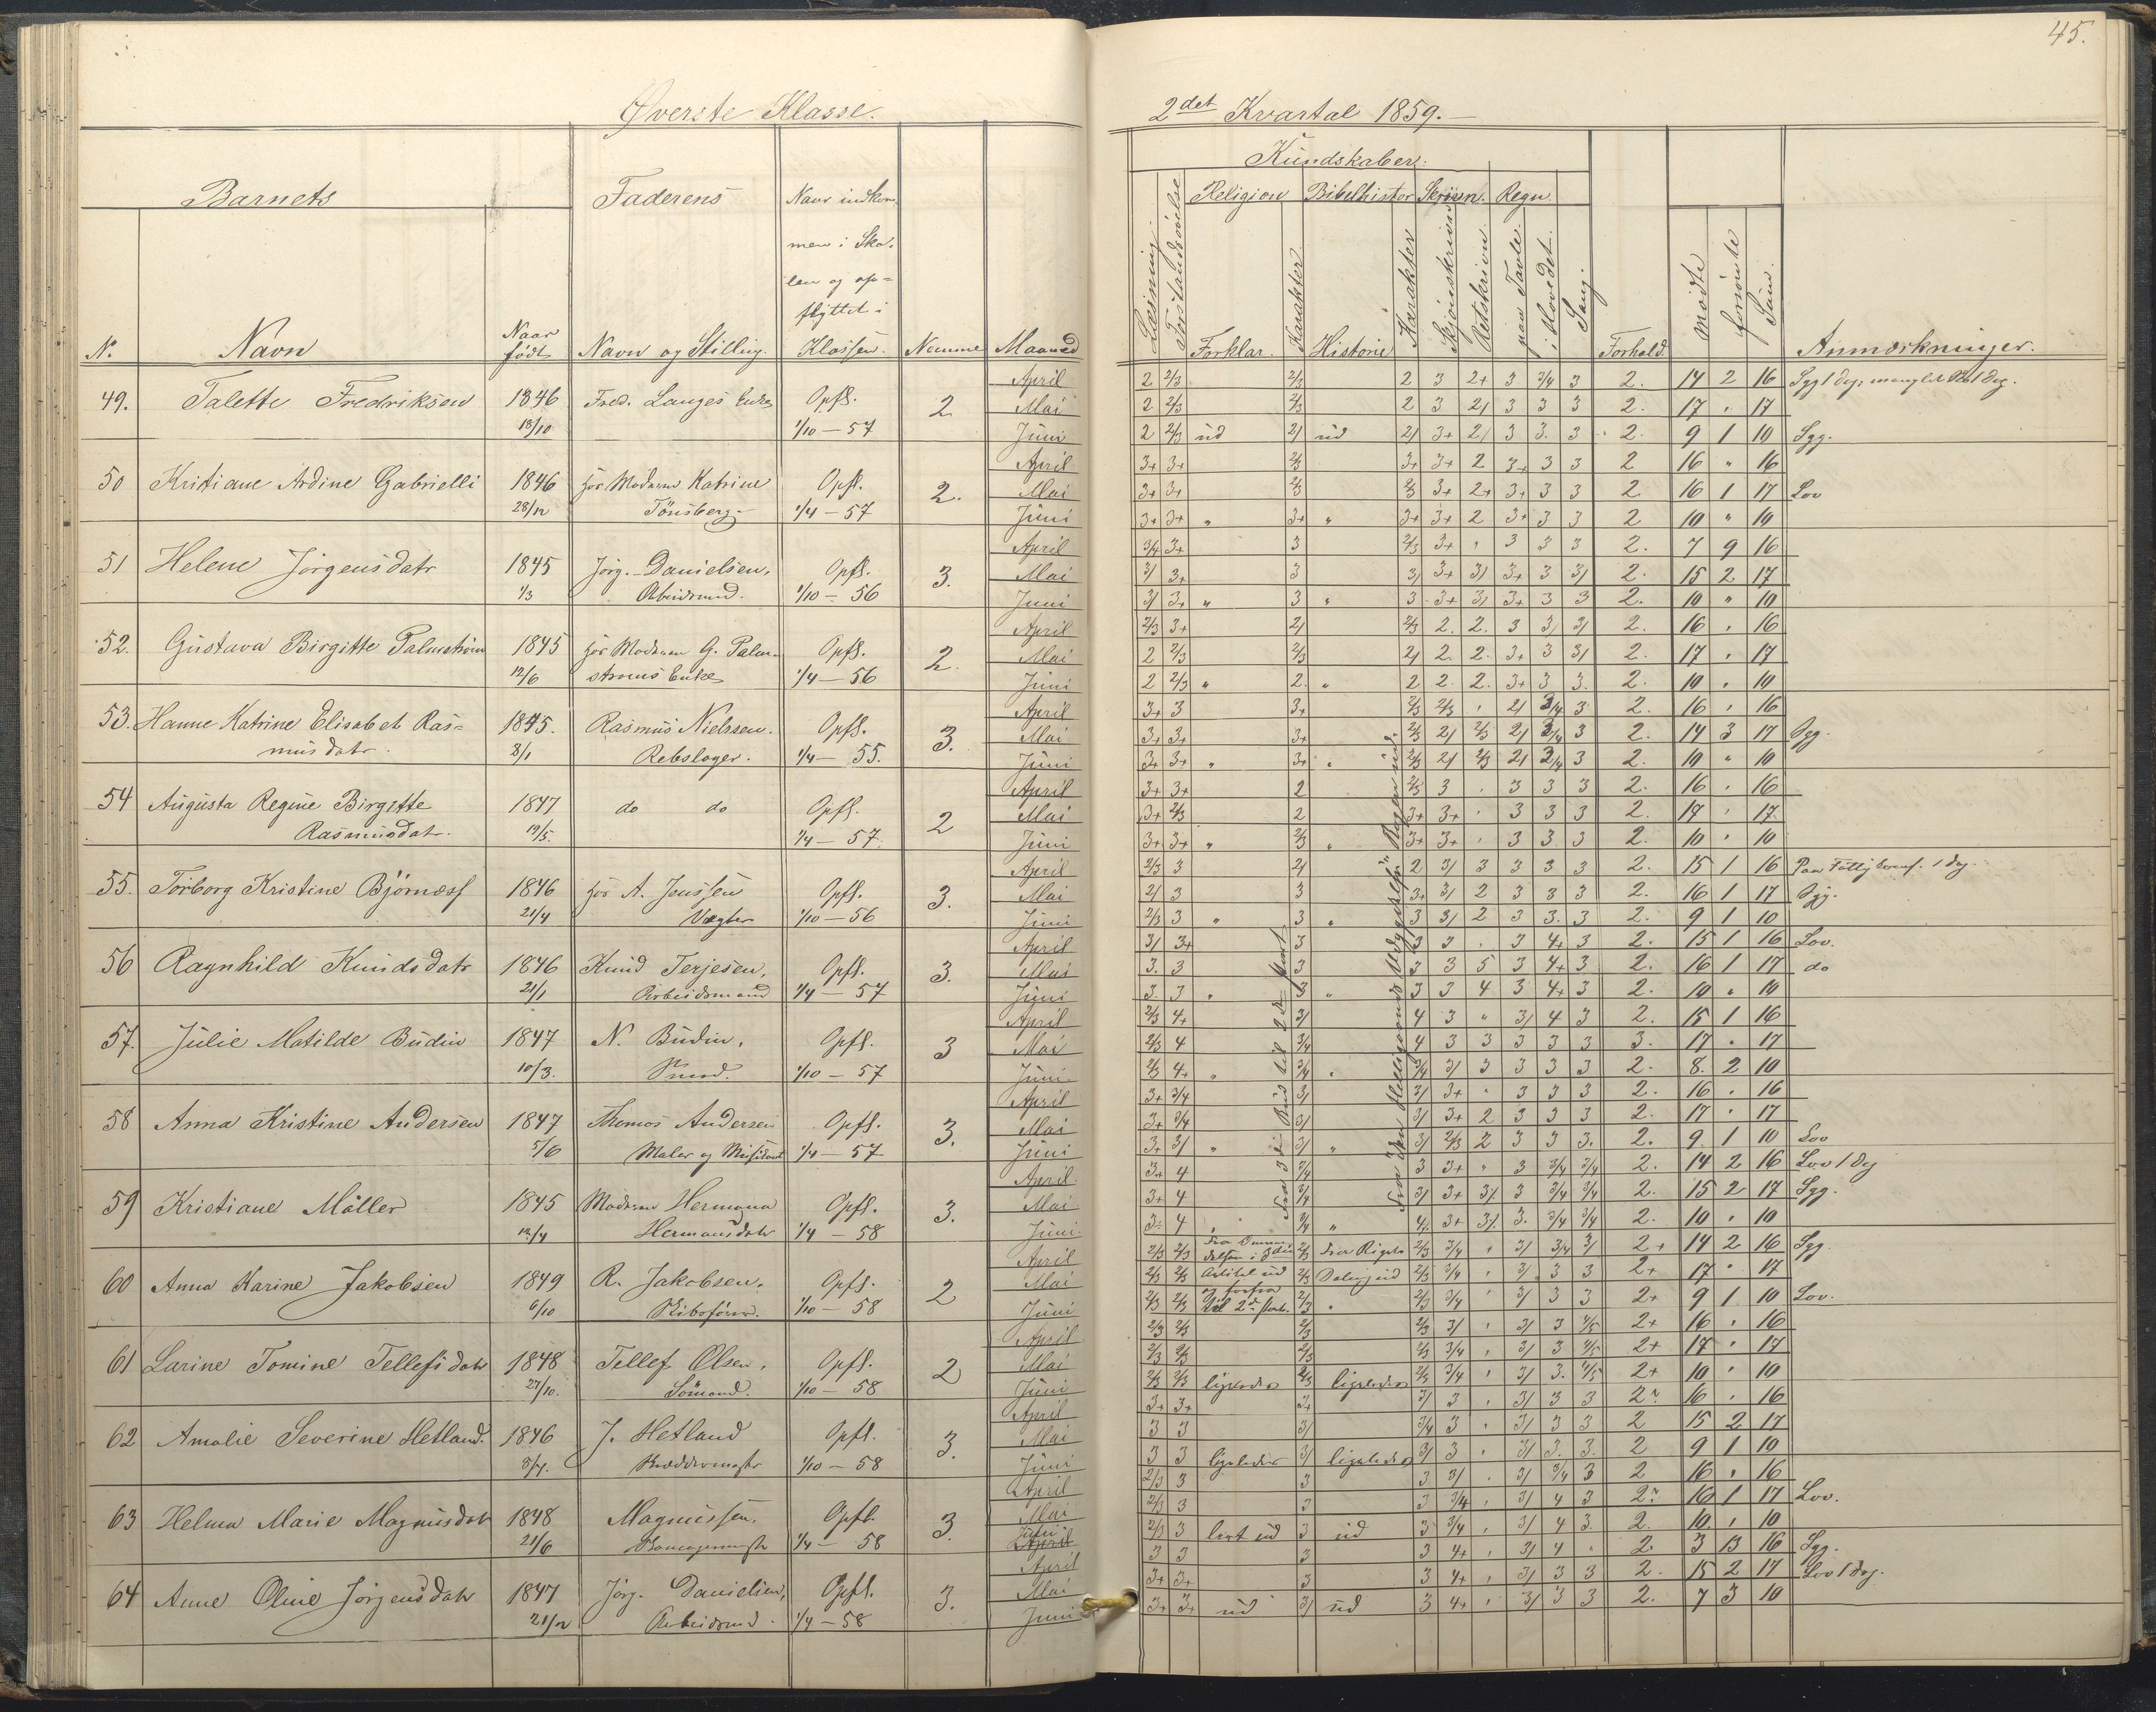 45.
Øverste Klasse.
2det Kvartal 1859.
Kundskaber.
Barnets
Faderens
Naar indkom-
men i Sko-
len og op-
flyttet i
Klassen.
N.
Navn
Naar
født
Navn og Stilling.
Nummer
Maaned
Læsning
Religion
Forklar.
Karakter
Bibelhistor
Historie
Karakter
Skrivn.
Skjönskrivn
Retskrivn.
Regn.
paa Tavle.
i Hovedet.
Sang.
Forhold.
mödte
forsömte
Sum.
Anmærkninger.
49. Talette Fredriksen 1846 Fred. Langes Enke Opfl. 2 April 2 2/3 2/3 2 3 2+ 3 3/4 3 2. 14 2 16
Mai 2 2/3 2/3 2 3 2/ 3 3 3 2. 17 " 17
18/10 1/10 — 57 Juni 2 2/3 ud 2/ ud 2/ 3+ 2/ 3 3. 3 2. 9 1 10 Syg.
50 Kristiane Ardine Gabrielli 1846 hos Moderen Katrine Opfl. 2. April 3+ 3+ 2/3 3+ 3+ 2 3+ 3 3 2 16 " 16
28/12 Tönsberg 1/4 — 57 Mai 3+ 3+ 2/3 2/3 3+ 2+ 3+ 3 3 2 16 1 17 Lov
Juni 3+ 3+ " 3+ " 3+ 3+ 2 3+ 3 3 2 10 " 10
51 Helene Jörgensdatr 1845 Jörg. Danielsen, Opfl. 3. April 3/4 3+ 3 2/3 3+ " 3 3 3 2. 7 9 16
1/3 Arbeidsmand. 1/10 — 56 Mai 3/ 3+ 3 3/ 3+ 3/ 3+ 3 3/ 2. 15 2 17
Juni 3/ 3+ " 3 " 3 3+ 3/ 3+ 3 3 2. 10 " 10
52. Gustava Birgitte Palmström 1845 hos Moderen G. Palm- Opfl. 2. April 2/3 3+ 2/ 2/3 2. 2. 3 3/ 3/ 2. 16 " 16
12/6 stroms Enke 1/4 — 56 Mai 2 2/3 2/3 2/ 2. 2. 3+ 3 3/ 2. 17 " 17
Juni 2 2/3 " 2. " 2 2. 2. 3+ 3 3. 2. 10 " 10
53. Hanne Katrine Elisabet Ras- 1845. Rasmus Nielssen. Opfl. 3. April 3+ 3 3+ 2/3 2/3 " 2/ 3/4 3 2. 16 " 16
musdatr. 8/1 Rebslager. 1/4 — 55. Mai 3+ 3+ 3+ 2/3 2/ 2/3 2/ 3/4 3 2. 14 3 17 Syg.
Juni 3+ 3+ " 3+ " 2/3 2/ 2/3 2/ 3/4 3 2. 10 " 10
54 Augusta Regine Birgitte 1847 do do Opfl. 2 April 3+ 3+ 2 2/3 3 " 3 3 3 2. 16 " 16
Rasmusdatr. 19/5. 1/4 — 57. Mai 3+ 2/3 2 3+ 3+ " 3 3 3 2. 17 " 17.
Juni 3+ 3+ " 2/3 " 3+ 3+ " 3 3 3 2. 10 " 10
55. Torborg Kristine Björnæss 1846 hos A. Jenssen Opfl. 3. April 2/3 3 2/ 2 3/ 3 3 3 3 2. 15 1 16
21/4 Vægter 1/10 — 56 Mai 2/ 3 3 3+ 3/ 2 3 3 3 2. 16 1 17 Syg.
Juni 2/3 3 " 3 " 3 3/ 2 3 3. 3 2. 9 1 10
56 Ragnhild Knudsdatr 1846 Knud Terjesen, Opfl. 3. April 3/ 3+ 3 3 3 " 3 4+ 3 2. 15 1 16 Lov.
21/1 Arbeidsmand 1/4 — 57 Mai 3. 3 3 3 3 5 3 4+ 3 2. 16 1 17 do
Juni 3. 3 " 3 " 3 3 4 3 4+ 3 2. 10 " 10
57. Julie Matilde Budin 1847 N. Budin, Opfl. 3 April 2/3 4+ 3/ 4 3 " 3/ 4 3 2. 15 1 16
10/3. 1/10 — 57 Mai 2/3 4 3/4 4 3 3 3 3 3 3. 17 " 17
Juni 2/3 4+ " 3/4 " 3/4 3/ 3 3 3 3 2. 8. 2 10
58 Anna Kristine Andersen 1847 Thomas Andersen Opfl. 3. April 3+ 3/4 3/ 3/ 3+ " 3 3 3 2. 16 " 16
5/6 Maler og 1/4 — 57 Mai 3+ 3/4 3/ 3/ 3+ 2 3 3 3 2. 17 " 17
Juni 3+ 3/ " 3/ " 3/ 2/3 2 3 3 3. 2. 9 1 10 Lov
59 Kristiane Möller 1845 Moderen Hermana Opfl. 3. April 3+ 4 3/4 3 3+ " 3 3/4 3/4 2. 14 2 16 Lov 1 Dag
12/4 Hermansdatr 1/4 — 58 Mai 3+ 4 3/4 3/ 3+ 3/. 3 3/4 3/4 2. 15 2 17 Syg.
Juni 3 4 " 3/4 " 4/. 3+ 3/. 3. 3/4 3/4 2. 10 " 10
60 Anna Karine Jakobsen 1849 R. Jakobsen. Opfl. 2 April 2/3 2/3 2/3 Fra Rigets 2/3 3/4 " 3/ 3/4 3/ 2+ 14 2 16 Syg.
6/10 1/10 — 58 Mai 2/3 2/3 Artikel ud 2/3 Deling ud 2/3 3/4 " 3/ 3 3 2+ 17 " 17
Juni 2/3 2/3 og forfra til 2d Part. 2/3 " 2/3 3/4 " 3/ 3 3 2+ 9 1 10 Lov.
61 Larine Tomine Tellefsdatr 1848 Tellef Olsen, Opfl. 2 April 2/3 2/3 2/3 2/3 3/ " 3/ 3 4/5 2+ 16 " 16
27/10. Sömand. 1/10 — 58 Mai 2/3 2/3 2/3 2/3 3/4 " 3/ 3 4/5 2+ 17 " 17
Juni 2/3 2/3 ligeledes 2/3 ligeledes 2/3 3/4 " 3/ 3. 4/5 2+ 10 " 10
62 Amalie Severine Hetland. 1846 J. Hetland Opfl. 3. April 3+ 3+ 3+ 3/ 3 " 3/ 3 3 2 16 " 16
8/7. 1/10 — 58 Mai 3 3 3/ 3/4 3 " 3/ 3 3 2 15 2 17
Juni 3 3 ligeledes 3/ ligeledes 3/ 3 " 3/ 3. 3. 2 9 1 10
63 Helma Marie Magnusdatr 1848 Magnussen, Opfl. 3. April 2/3 3 3 3 3/ " 3/ 3/4 3 2 16 " 16
21/6 1/4 — 58 Mai 2/3 3 3 3 3/4 " 3/ 4 3 2 16 1 17 Lov.
Juni 2/3 3 lært ud 3 ud 3 3/4 " 3/ 4 3. 2. 10 " 10
64 Anne Oline Jörgensdatr 1847 Jörg. Danielsen, Opfl. 3. April 3 3 3 3 4+ " 3/ 4 " 2 3 13 16 Syg.
21/12 Arbeidsmd. 1/4 — 58 Mai 3+ 3+ 3 3 4+ " 3/ 3 3 2. 15 2 17 Lov 1 Dag.
Juni 3+ 3+ ud 3/ ud 3 4+ " 3/ 3 3 2. 7 3 10